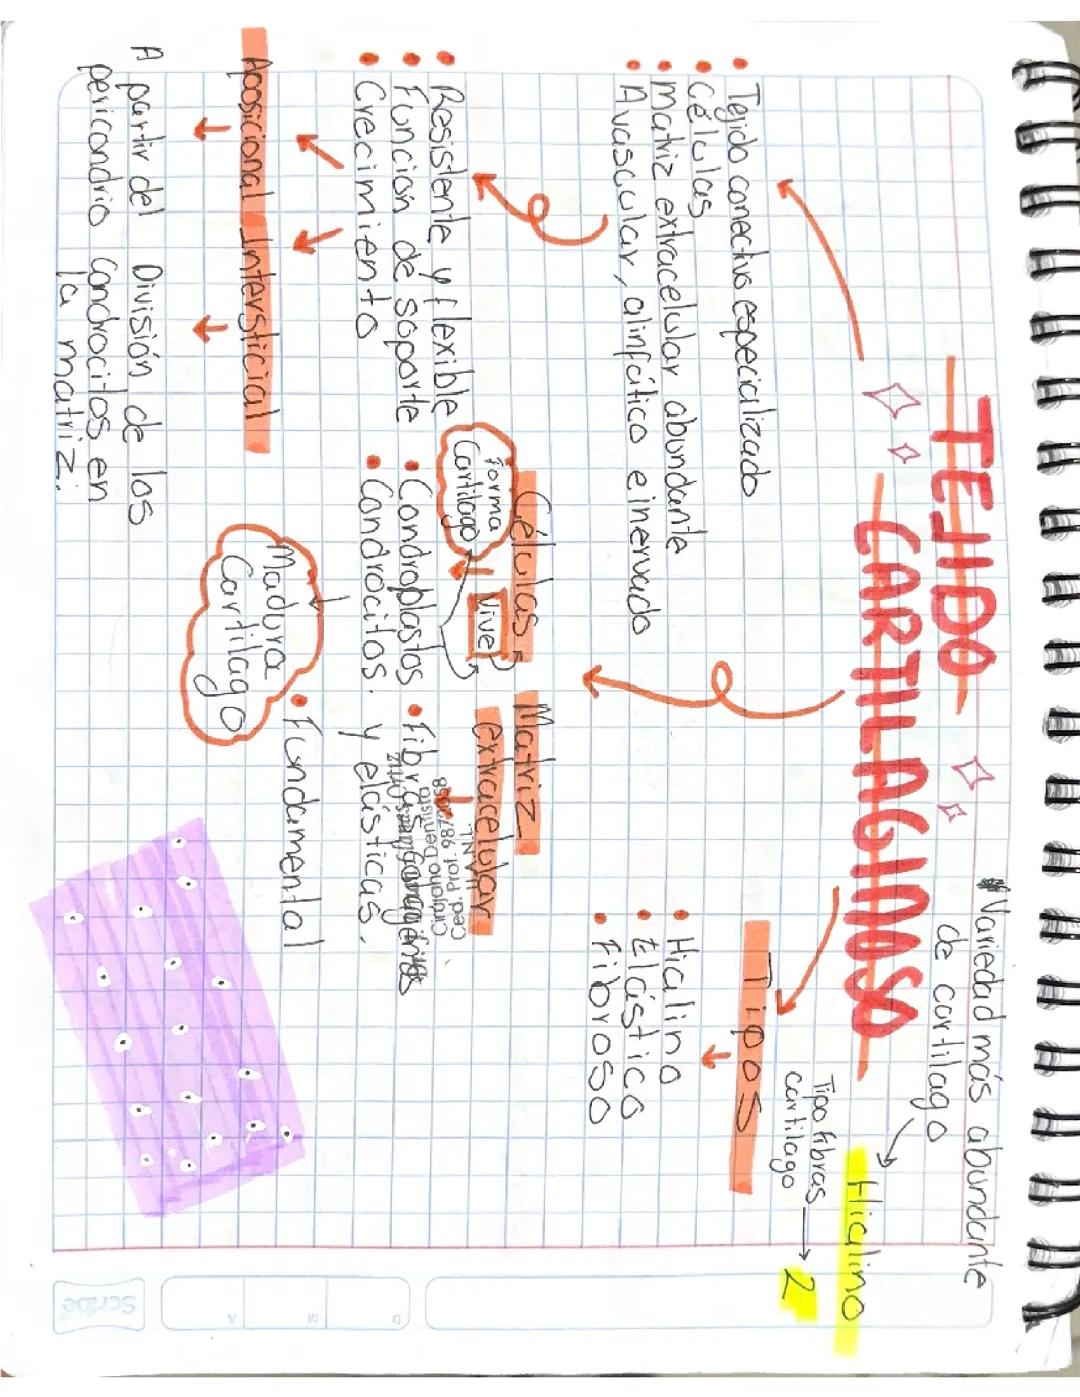 TEJIDO
CARTILAGINOSO
*Variedad más abundante
de cartilago
Hialino
Tipo fibras
cartilago
2
Tejido conectivo especializado
Células
Matriz extracelular abundante
Avascular, alinfático e inervado
Resistente y flexible
Función de soporte
Crecimiento
Aposicional
Intersticial
A partir del
pericondrio
División de los
condrocitos en
la matriz.
Células
Vive
Forma
Cartilago
Condroplastos
Condrocitos.
Madura
Cartilago
Matriz
extracelular
Fibras
y elásticas.
Fundamental
Cirujano Dentista
Ced. Prof.
Tipos
Hialino
Elástico
Fibroso
D
M
A
Scribe